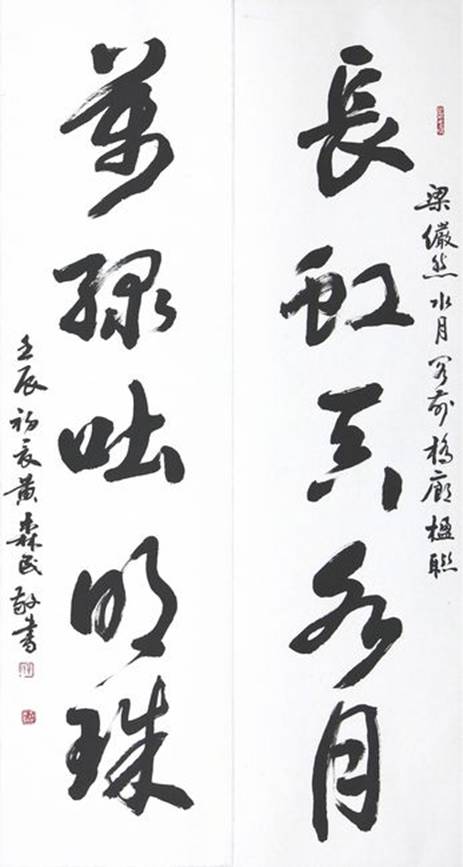 長虹水月
梁儼然水月閣前橋廊楹聯
萬綠吐明珠
壬辰初夏黄森民敬書